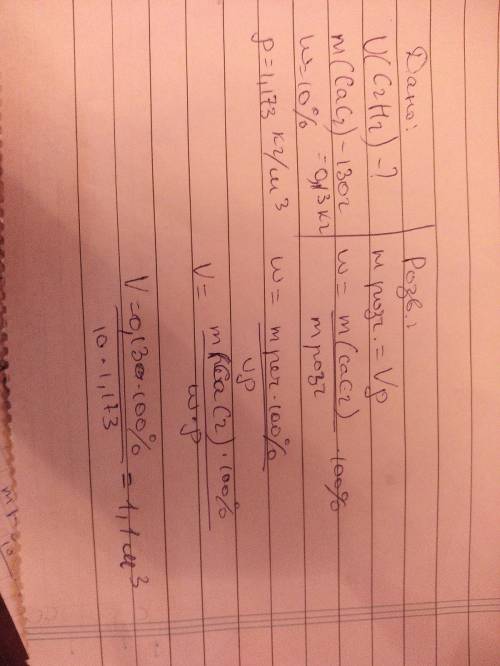 Дано:
V(C2H2) - ?
m(CaC2) - 130г
= 0,13 кг
w = 10%
ρ = 1,173 кг/м³
Розв.:
m розч. = Vρ
w = m(CaC2) / m розч · 100%
w = m реч · 100% / Vρ
V = m(CaC2) · 100% / w · ρ
V = 0,130 · 100% / 10 · 1,173 = 1,1 м³